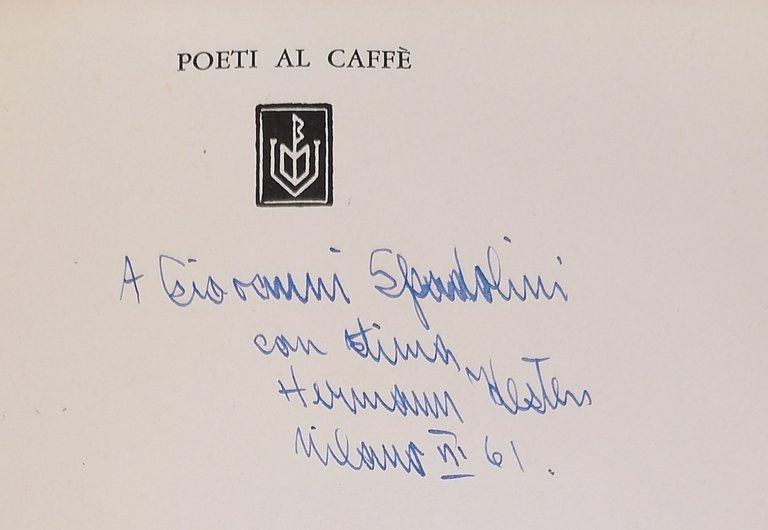 POETI AL CAFFÈ
A Giovanni Spadolini
con stima,
Hermann Kesten
Milano 61.